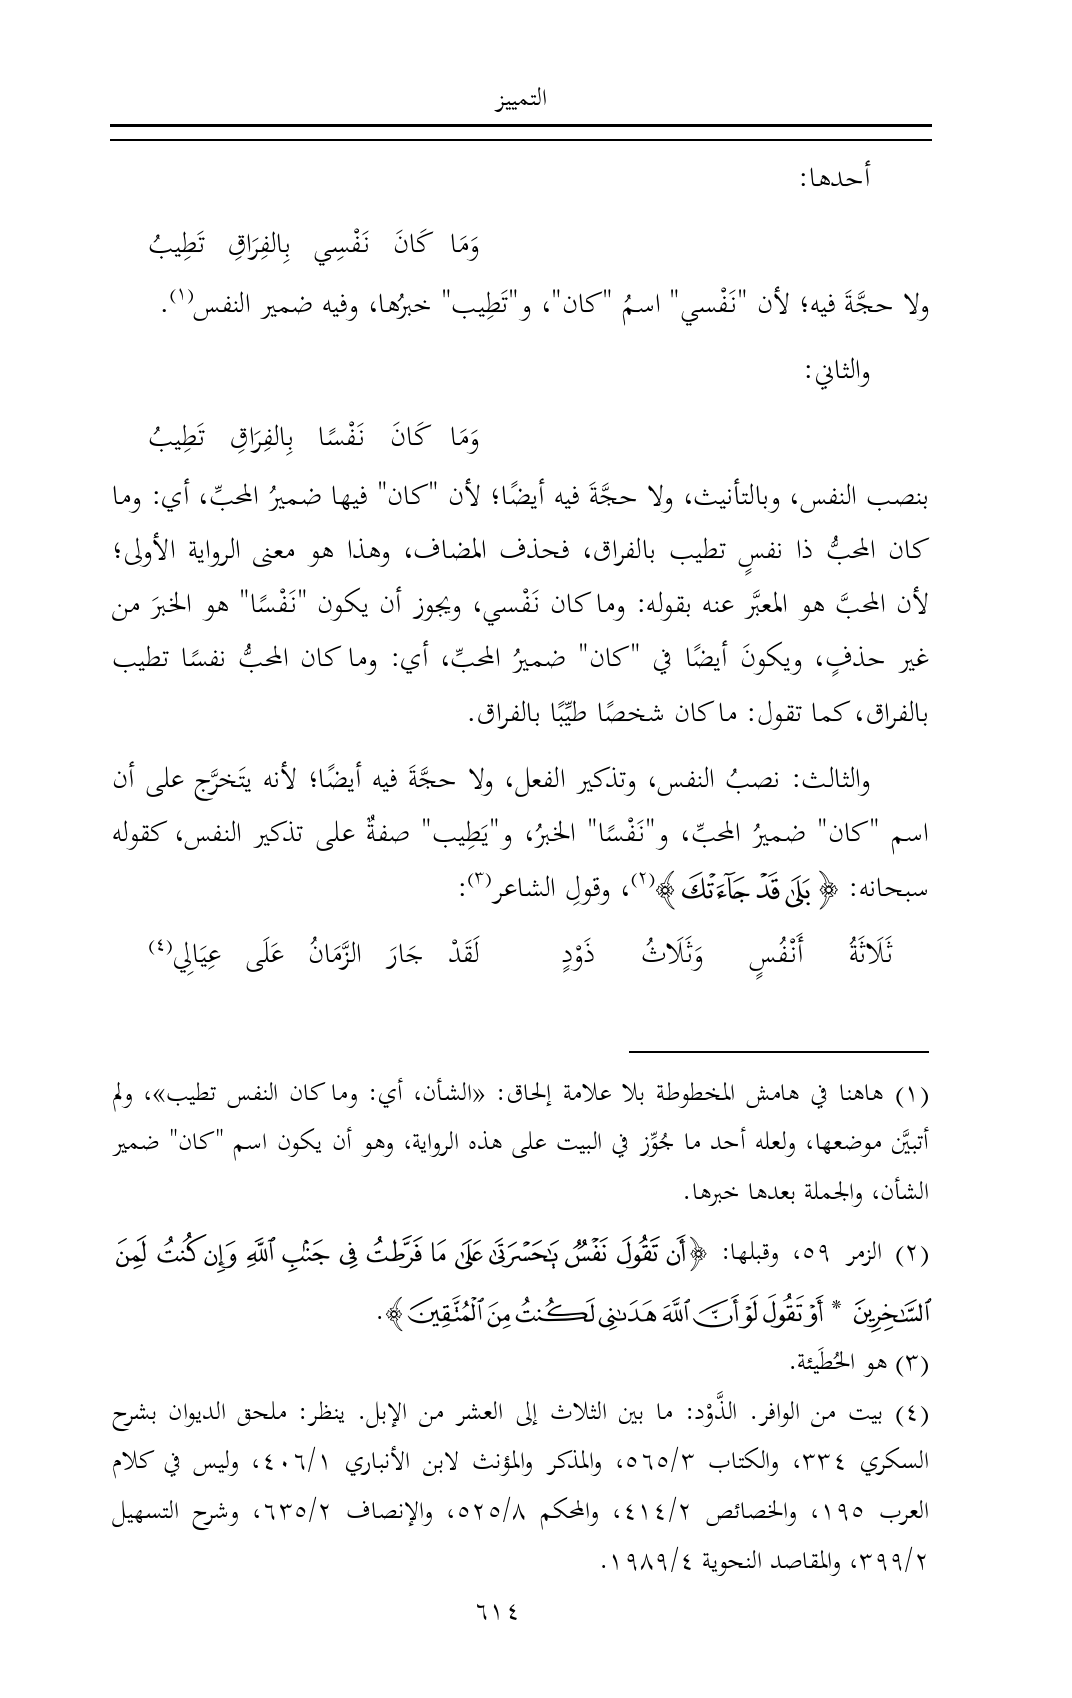 التمييز
أحدها:
وَمَا كَانَ نَفْسِي بِالفِرَاقِ تَطِيبُ
ولا حجَّةَ فيه؛ لأن "نَفْسي" اسمُ "كان"، و"تَطِيب" خبرُها، وفيه ضمير النفس(١).
والثاني:
وَمَا كَانَ نَفْسًا بِالفِرَاقِ تَطِيبُ
بنصب النفس، وبالتأنيث، ولا حجَّةَ فيه أيضًا؛ لأن "كان" فيها ضميرُ المحبِّ، أي: وما
كان المحبُّ ذا نفسٍ تطيب بالفراق، فحذف المضاف، وهذا هو معنى الرواية الأولى؛
لأن المحبَّ هو المعبَّر عنه بقوله: وما كان نَفْسي، ويجوز أن يكون "نَفْسًا" هو الخبرَ من
غير حذفٍ، ويكونَ أيضًا في "كان" ضميرُ المحبِّ، أي: وما كان المحبُّ نفسًا تطيب
بالفراق، كما تقول: ما كان شخصًا طيِّبًا بالفراق.
والثالث: نصبُ النفس، وتذكير الفعل، ولا حجَّةَ فيه أيضًا؛ لأنه يتَخرَّج على أن
اسم "كان" ضميرُ المحبِّ، و"نَفْسًا" الخبرُ، و"يَطِيب" صفةٌ على تذكير النفس، كقوله
سبحانه: ﴿ بَلَىٰ قَدْ جَآءَتْكَ ﴾(٢)، وقولِ الشاعر(٣):
ثَلَاثَةُ أَنْفُسٍ وَثَلَاثُ ذَوْدٍ لَقَدْ جَارَ الزَّمَانُ عَلَى عِيَالِي(٤)
(١) هاهنا في هامش المخطوطة بلا علامة إلحاق: «الشأن، أي: وما كان النفس تطيب»، ولم
أتبيَّن موضعها، ولعله أحد ما جُوِّز في البيت على هذه الرواية، وهو أن يكون اسم "كان" ضمير
الشأن، والجملة بعدها خبرها.
(٢) الزمر ٥٩، وقبلها: ﴿أَن تَقُولَ نَفْسٌ يَٰحَسْرَتَىٰ عَلَىٰ مَا فَرَّطتُ فِي جَنۢبِ ٱللَّهِ وَإِن كُنتُ لَمِنَ
ٱلسَّٰخِرِينَ * أَوْ تَقُولَ لَوْ أَنَّ ٱللَّهَ هَدَىٰنِي لَكُنتُ مِنَ ٱلْمُتَّقِينَ﴾.
(٣) هو الحُطَيئة.
(٤) بيت من الوافر. الذَّوْد: ما بين الثلاث إلى العشر من الإبل. ينظر: ملحق الديوان بشرح
السكري ٣٣٤، والكتاب ٥٦٥/٣، والمذكر والمؤنث لابن الأنباري ٤٠٦/١، وليس في كلام
العرب ١٩٥، والخصائص ٤١٤/٢، والمحكم ٥٢٥/٨، والإنصاف ٦٣٥/٢، وشرح التسهيل
٣٩٩/٢، والمقاصد النحوية ١٩٨٩/٤.
٦١٤